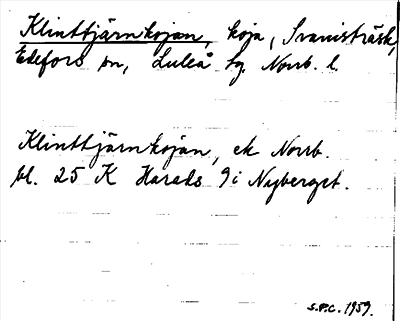 Klinttjärnkojan, koja, Svanisträsk,
Edefors sn, Luleå tg. Norrb. l.
Klinttjärnkojan, ek Norrb.
bl. 25 K Harads 9i Nyberget.
S.P.C. 1959.